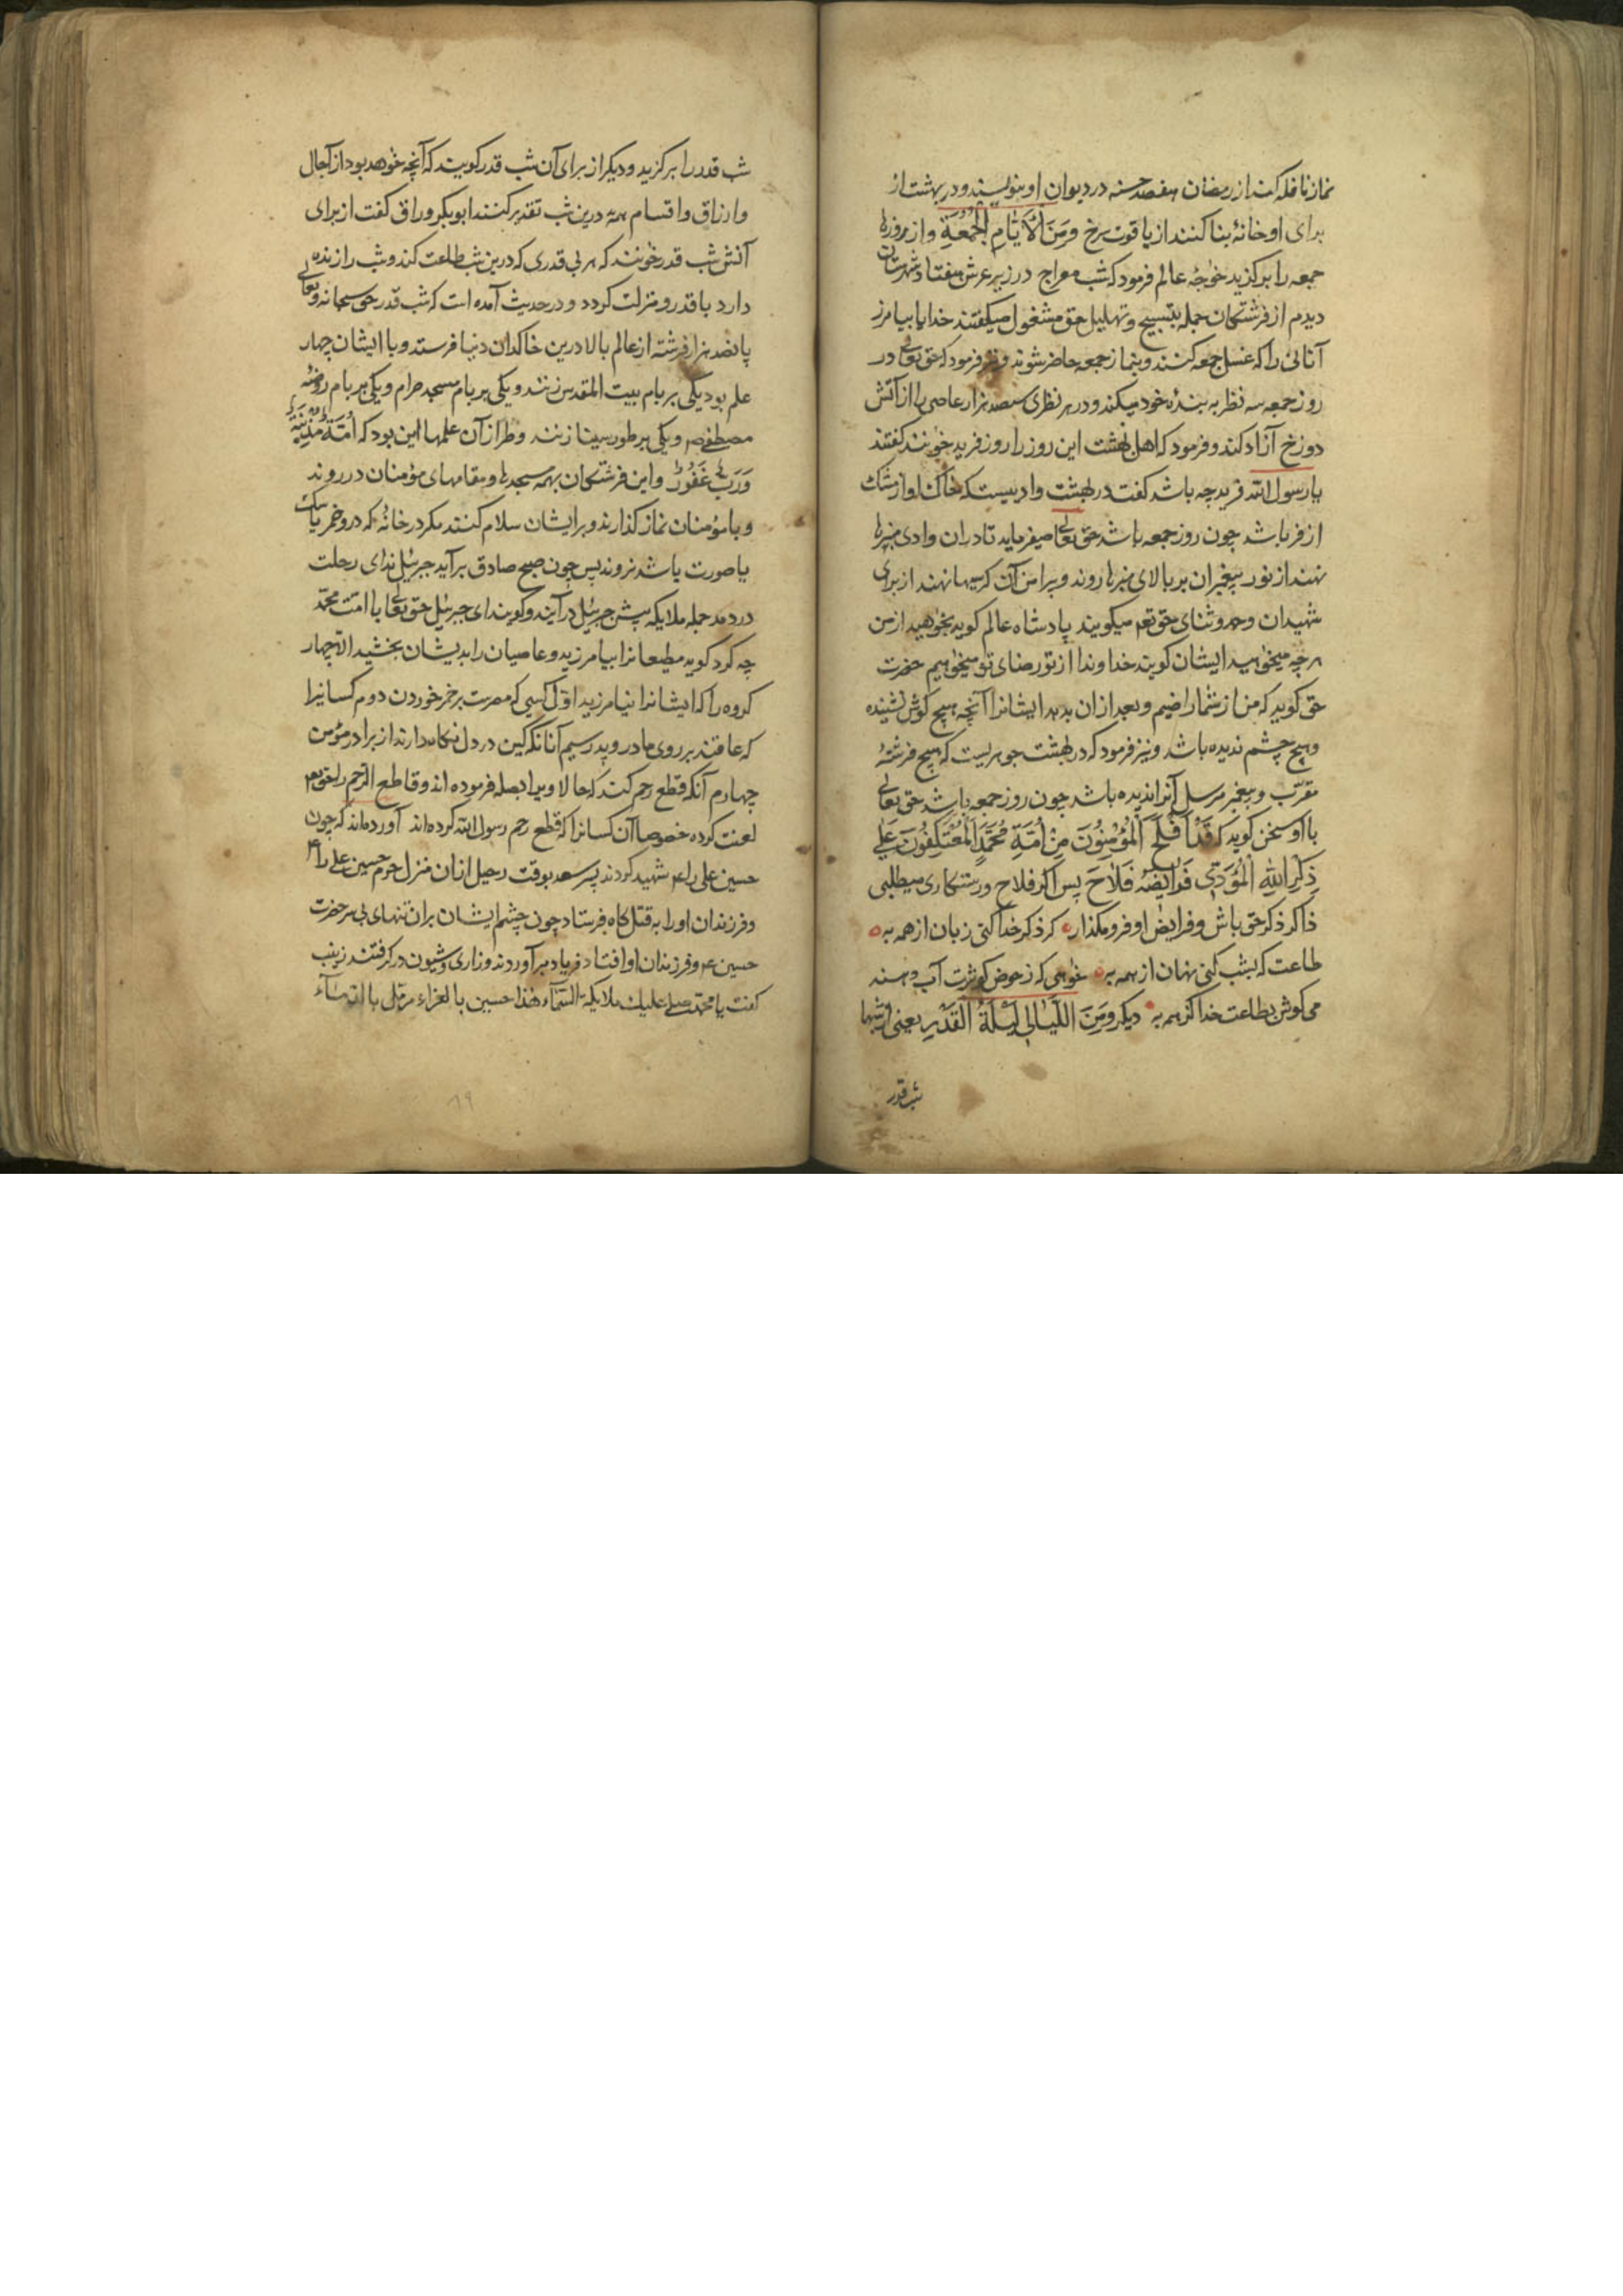 نماز نافله کند از رمضان هفصد حسنه در دیوان او بنویسند و در بهشت از
برای او خانهٔ بنا کنند از یاقوت سرخ وَمِنَ الْاَیّٰامِ الْجُمُعَةِ و از روزها
جمعه را برکزید خواجهٔ عالم فرمود که شب معراج در زیر عرش هفتاد شهرستان
دیدم از فرشتکان جمله بتسبیح و تهلیل حق مشغول میکفتند خدایا بیامرز
آنانی را که غسل جمعه کنند و بنماز جمعه حاضر شوند و نیز فرمود که حق تعالی در
روز جمعه سه نظر به بندهٔ خود میکند و در هر نظری سیصد هزار عاصی را از آتش
دوزخ آزاد کند و فرمود که اهل بهشت این روز را روز فرید خوانند کفتند
یا رسول الله فرید چه باشد کفت در بهشت وادییست که خاک او از مشک
ازفر باشد چون روز جمعه باشد حق تعالی میفرماید تا در ان وادی منبرها
نهند از نور پیغبران بر بالای منبرها روند و پیرامن آن کرسیها نهند از برای
شهیدان و حمد و ثنای حق تعم میکویند پادشاه عالم کوید بخواهید از من
هر چه میخواهید ایشان کویند خداوندا از تو رضای تو میخواهیم حضرت
حق کوید که من از شما راضیم و بعد از ان بدهد ایشانرا آنچه هیچ کوش نشنیده
و هیچ چشم ندیده باشد و نیز فرمود که در بهشت جوهریست که هیچ فرشتهٔ
مقرّب و پیغمبر مرسل آنرا ندیده باشد چون روز جمعه باشد حق تعالی
با او سخن کوید که قَدْ اَفْلَحَ الْمُؤْمِنُوْنَ مِنْ اُمَّةِ مُحَمَّدٍ الْمُعْتَکِفُوْنَ عَلٰی
ذِکْرِ اللهِ الْمُؤَدّی فَرایضَهُ فَلٰاحَ پس اکر فلاح و رستکاری میطلبی
ذاکر ذکر حق باش و فرایض او فرو مکذار کر ذکر خدا کنی زبان از همه به
طاعت که بشب کنی نهان از همه به خواهی که ز حوض کوثرت آب دهند
می کوش بطاعت خدا کز همه به دیکر وَمِنَ اللَّیٰالی لَیْلَةُ الْقَدْرِ یعنی از شبها
شب قدر
شب قدر را برکزید و دیکر از برای آن شب قدر کویند که آنچه خواهد بود از آجال
و ارزاق و اقسام همه درین شب تقدیر کنند ابوبکر وراق کفت از برای
آنش شب قدر خوانند که هر بی قدری که درین شب طاعت کند و شب را زنده
دارد با قدر و منزلت کردد و در حدیث آمده است که شب قدر حق سبحانه و تعالی
پانصد هزار فرشته از عالم بالا درین خاکدان دنیا فرستد و با ایشان چهار
علم بود یکی بر بام بیت المقدس زنند و یکی بر بام مسجد حرام و یکی بر بام روضهٔ
مصطفی ص و یکی بر طور سینا زنند و طراز آن علمها این بود که اُمَّةٌ مُذْنِبَةٌ
وَرَبٌّ غَفُوْرٌ و این فرشتکان بهمه مسجدها و مقامهای مؤمنان در روند
و با مؤمنان نماز کذارند و بر ایشان سلام کنند مکر در خانهٔ که درو خمر یا سک
یا صورت باشد نروند پس چون صبح صادق برآید جبرئیل ندای رحلت
در دهد جمله ملایکه پیش جبرئیل در آیند و کویند ای جبرئیل حق تعالی با امت محمّد
چه کرد کوید مطیعانرا بیامرزید و عاصیان را بدیشان بخشید الا چهار
کروه را که ایشانرا نیامرزید اوّل کسی که مصرست بر خمر خوردن دوم کسانیرا
که عاقند بر روی مادر و پدر سیم آنانکه کین در دل نکاه دارند از برادر مؤمن
چهارم آنکه قطع رحم کند که حالا ویرا بصله فرموده اند و قاطع الرّحم را حق تعم
لعنت کرده خصوصا آن کسانرا که قطع رحم رسول الله کرده‌اند آورده‌اند که چون
حسین علی را ع شهید کردند پسر سعد بوقت رحیل از ان منزل حرم حسین علی را ع
و فرزندان او را به قتلکاه فرستاد چون چشم ایشان بران تنهای بی سر حضرت
حسین ع و فرزندان او افتاد فریاد برآوردند و زاری و شیون در کرفتند زینب
کفت یا محمّد صلی علیک ملایکة السّماء هٰذا حسین بالعراء مرمّل بالدماء